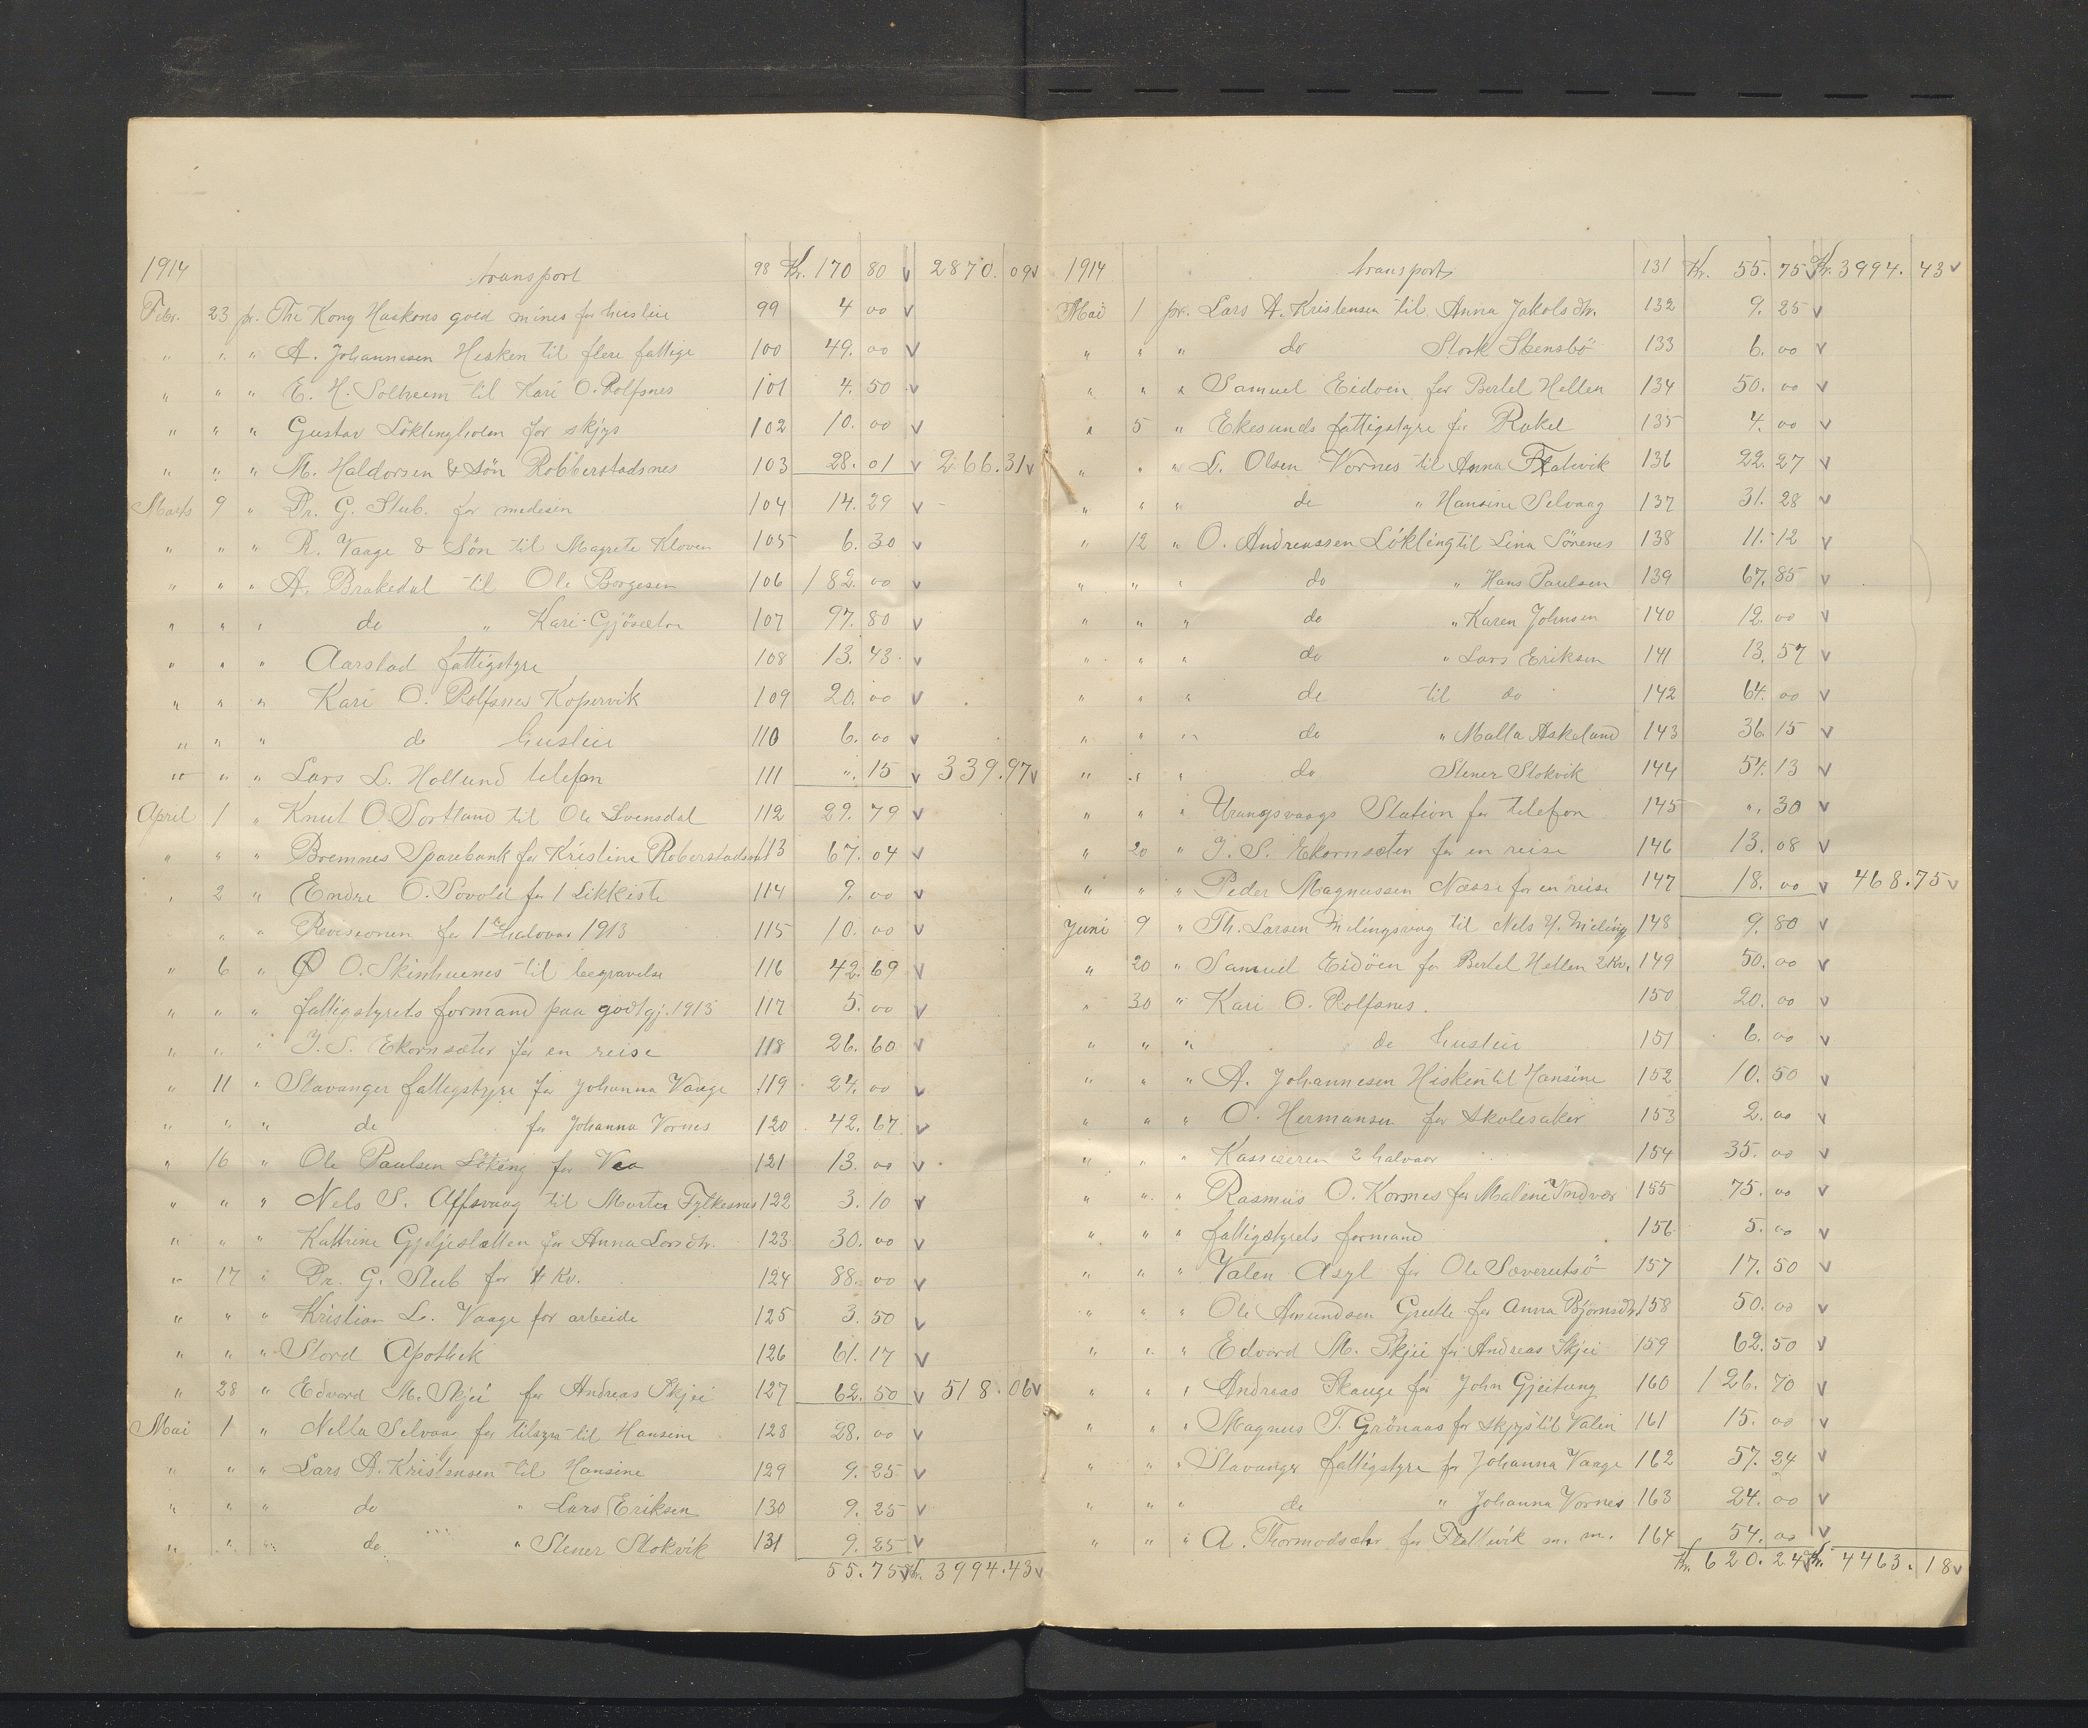 1914 transport 98 Kr. 170 80 v 2870. 09 v
Febr. 23 pr. The Kong Haakons goed mines for husleie 99 4 00 v
" " " A. Johannesen Hisken til flere fattige 100 49. 00 v
" " " E. H. Solheim til Kari O. Rolfsnes 101 4. 50 v
" " " Gustav Löklingholm for skjys 102 10. 00 v
" " " M. Haldorsen & Søn Robberstadsnes 103 28. 01 v 266. 31 v
Marts 9 " Dr. G. Stub. for medisin 104 14. 29 v
" " " R. Vaage & Søn til Magrete Kloven 105 6. 30 v
" " " A. Brakedal til Ole Borgesen 106 182. 00 v
" " " do " Kari Gjösæter 107 97. 80 v
" " " Aarstad fattigstyre 108 13. 43 v
" " " Kari O. Rolfsnes Kopervik 109 20. 00 v
" " " do husleie 110 6. 00 v
" " " Lars L. Hollund telefon 111 ". 15 v 339. 97 v
April 1 " Knut O. Sortland til Ole Svensdal 112 29. 79 v
" " " Bremnes Sparebank for Kristine Roberstadsnes 113 67. 04 v
" 2 " Endre O. Sovold for 1 Likkiste 114 9. 00 v
" " Revisionen for 1ste halvaar 1913 115 10. 00 v
" 6 " O. Skinhuenes til begravelse 116 42. 69 v
" " " fattigstyrets formand paa godtgj. 1913 117 5. 00 v
" " " J. S. Ekornsæter for en reise 118 26. 60 v
" 11 " Stavanger fattigstyre for Johanna Vaage 119 24. 00 v
" " " do for Johanna Vornes 120 42. 67 v
" 16 " Ole Paulsen Lökling for Vea 121 13. 00 v
" " " Nels S. Affsvaag til Morten Fylkesnes 122 3. 10 v
" " " Kattrine Gjeljeslætten for Anna Larsdtr. 123 30. 00 v
" 17 " Dr. G. Stub for 4 Kv. 124 88. 00 v
" " " Kristian L. Vaage for arbeide 125 3. 50 v
" " " Stord Apothek 126 61. 17 v
" 28 " Edvard M. Skjei for Andreas Skjei 127 62. 50 v 518. 06 v
Mai 1 " Nella Selvaag for tilsyn til Hansine 128 28. 00 v
" " " Lars A. Kristensen til Hansine 129 9. 25 v
" " " do " Lars Eriksen 130 9. 25 v
" " " do " Stener Stokvik 131 9. 25 v
55. 75 v Kr. 3994. 43 v
1914 transport 131 Kr. 55. 75 v Kr. 3994. 43 v
Mai 1 pr. Lars A. Kristensen til Anna Jakobsdtr. 132 9. 25 v
" " " do Stork Stensbö 133 6. 00 v
" " " Samuel Eidöen for Bertel Hellen 134 50. 00 v
" 5 " Ekesunds fattigstyre for Rakel 135 4. 00 v
" " " L. Olsen Vornes til Anna Flatevik 136 22. 27 v
" " " do " Hansine Selvaag 137 31. 28 v
" 12 " O. Andreassen Lökling til Lina Sönenes 138 11. 12 v
" " " do " Hans Paulsen 139 67. 85 v
" " " do " Karen Johnsen 140 12. 00 v
" " " do " Lars Eriksen 141 13. 57 v
" " " do til do 142 64. 00 v
" " " do " Malla Askeland 143 36. 15 v
" " " do Stener Stokvik 144 54. 13 v
" " " Urangsvaags Station for telefon 145 ". 30 v
" 20 " J. S. Ekornsæter for en reise 146 13. 08 v
" " " Peder Magnussen Næsse for en reise 147 18. 00 v 468. 75 v
Juni 9 " Th. Larsen Melingsvag til Nels H. Meling 148 9. 80 v
" 20 " Samuel Eidöen for Bertel Hellen 2 Kv. 149 50. 00 v
" 30 " Kari O. Rolfsnes. 150 20. 00 v
" " " do husleie 151 6. 00 v
" " " A. Johannesen Hisken til Hansine 152 10. 50 v
" " " O. Hermansen for skolesaker 153 2. 00 v
" " " Kassereren 2 halvaar 154 35. 00 v
" " " Rasmus O. Kornes for Malene Yndvær 155 75. 00 v
" " " fattigstyrets formand 156 5. 00 v
" " " Valen Asyl for Ole Sæverutsö 157 17. 50 v
" " " Ole Amundsen Grutle for Anna Bjørnsdtr. 158 50. 00 v
" " " Edvard M. Skjei for Andreas Skjei 159 62. 50 v
" " " Andreas Skauge for John Gjeitung 160 126. 70 v
" " " Magnus T. Grönaas for skjys til Valen 161 15. 00 v
" " " Stavanger fattigstyre for Johanna Vaage 162 57. 24 v
" " " do " Johanna Vornes 163 24. 00 v
" " " A. Thormodsæter for Flattevik m. m. 164 54. 00 v
Kr. 620. 24 v Kr. 4463. 18 v